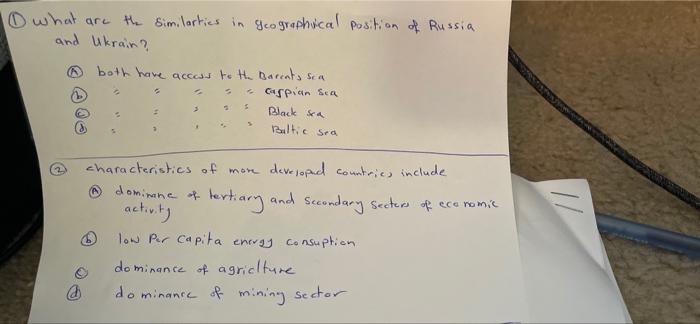 ① what are the similarties in geographical position of Russia
and Ukrain?
Ⓐ both have access to the Barents sea
ⓑ " " " " " caspian sea
ⓒ " " " " Black sea
ⓓ " " " " Baltic sea
② characteristics of more developed countries include
Ⓐ dominane of tertiary and secondary sectors of economic
activity
ⓑ low Per capita energy consuption
ⓒ dominance of agriclture
ⓓ dominance of mining sector